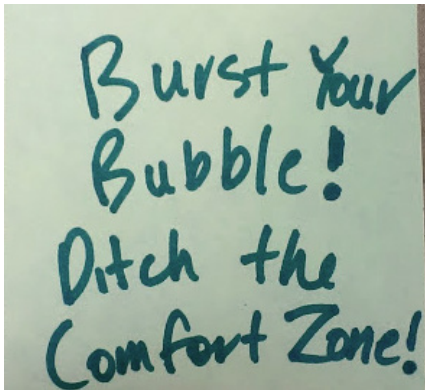 Burst Your
Bubble!
Ditch the
Comfort Zone!